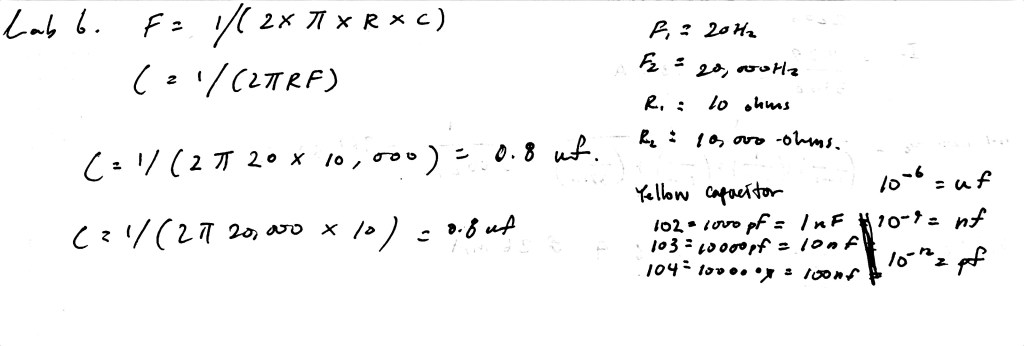 Lab 6. F = 1/(2 x π x R x C)
C = 1/(2πRF)
C = 1/(2π 20 x 10,000) = 0.8 uf.
C = 1/(2π 20,000 x 10) = 0.8 uf
F₁ = 20Hz
F₂ = 20,000Hz
R₁ = 10 ohms
R₂ = 10,000-ohms.
Yellow capacitor
102 = 1000 pf = 1nF
103 = 10000pf = 10nf
104 = 100000 = 100nf
10⁻⁶ = uf
10⁻⁹ = nf
10⁻¹² = pf